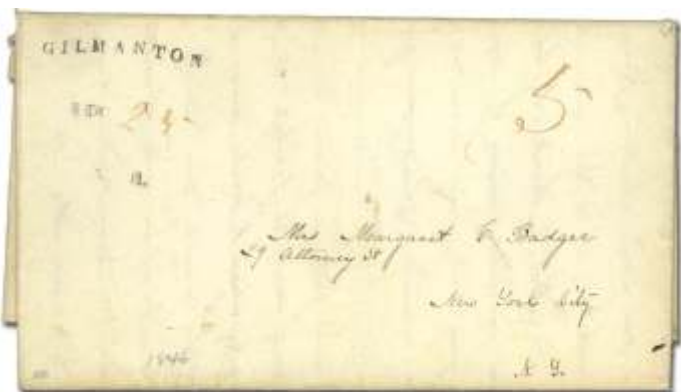 GILMANTON
5
25
Mrs Margaret E. Badger
29 Attorney St
New York City
1846
N. Y.